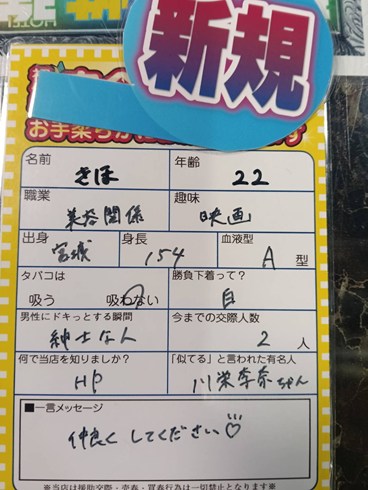 新規
お手柔らかに
名前
きほ
年齢
22
職業
美容関係
趣味
映画
出身
宮城
身長
154
血液型
A 型
タバコは
吸う 吸わない
勝負下着って?
白
男性にドキっとする瞬間
紳士な人
今までの交際人数
2 人
何で当店を知りましたか?
HP
「似てる」と言われた有名人
川栄李奈ちゃん
■一言メッセージ
仲良くしてください♡
※当店は援助交際・売春・買春行為は一切禁止となります※